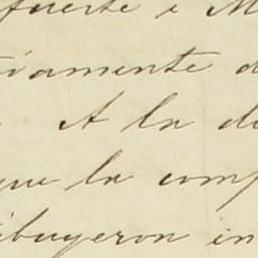 fuerte i M
viamente d
A la d
que la comp
ibuyeron in